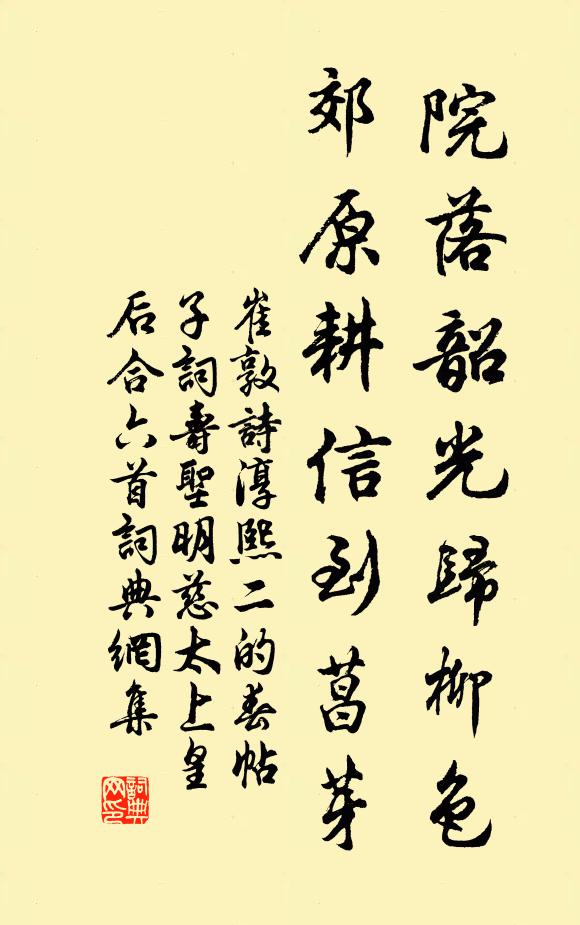 院落韶光歸柳色
郊原耕信到菖芽
崔敦詩淳熙二的春帖
子詞壽聖明慈太上皇
后合六首詞典網集
詞典網印